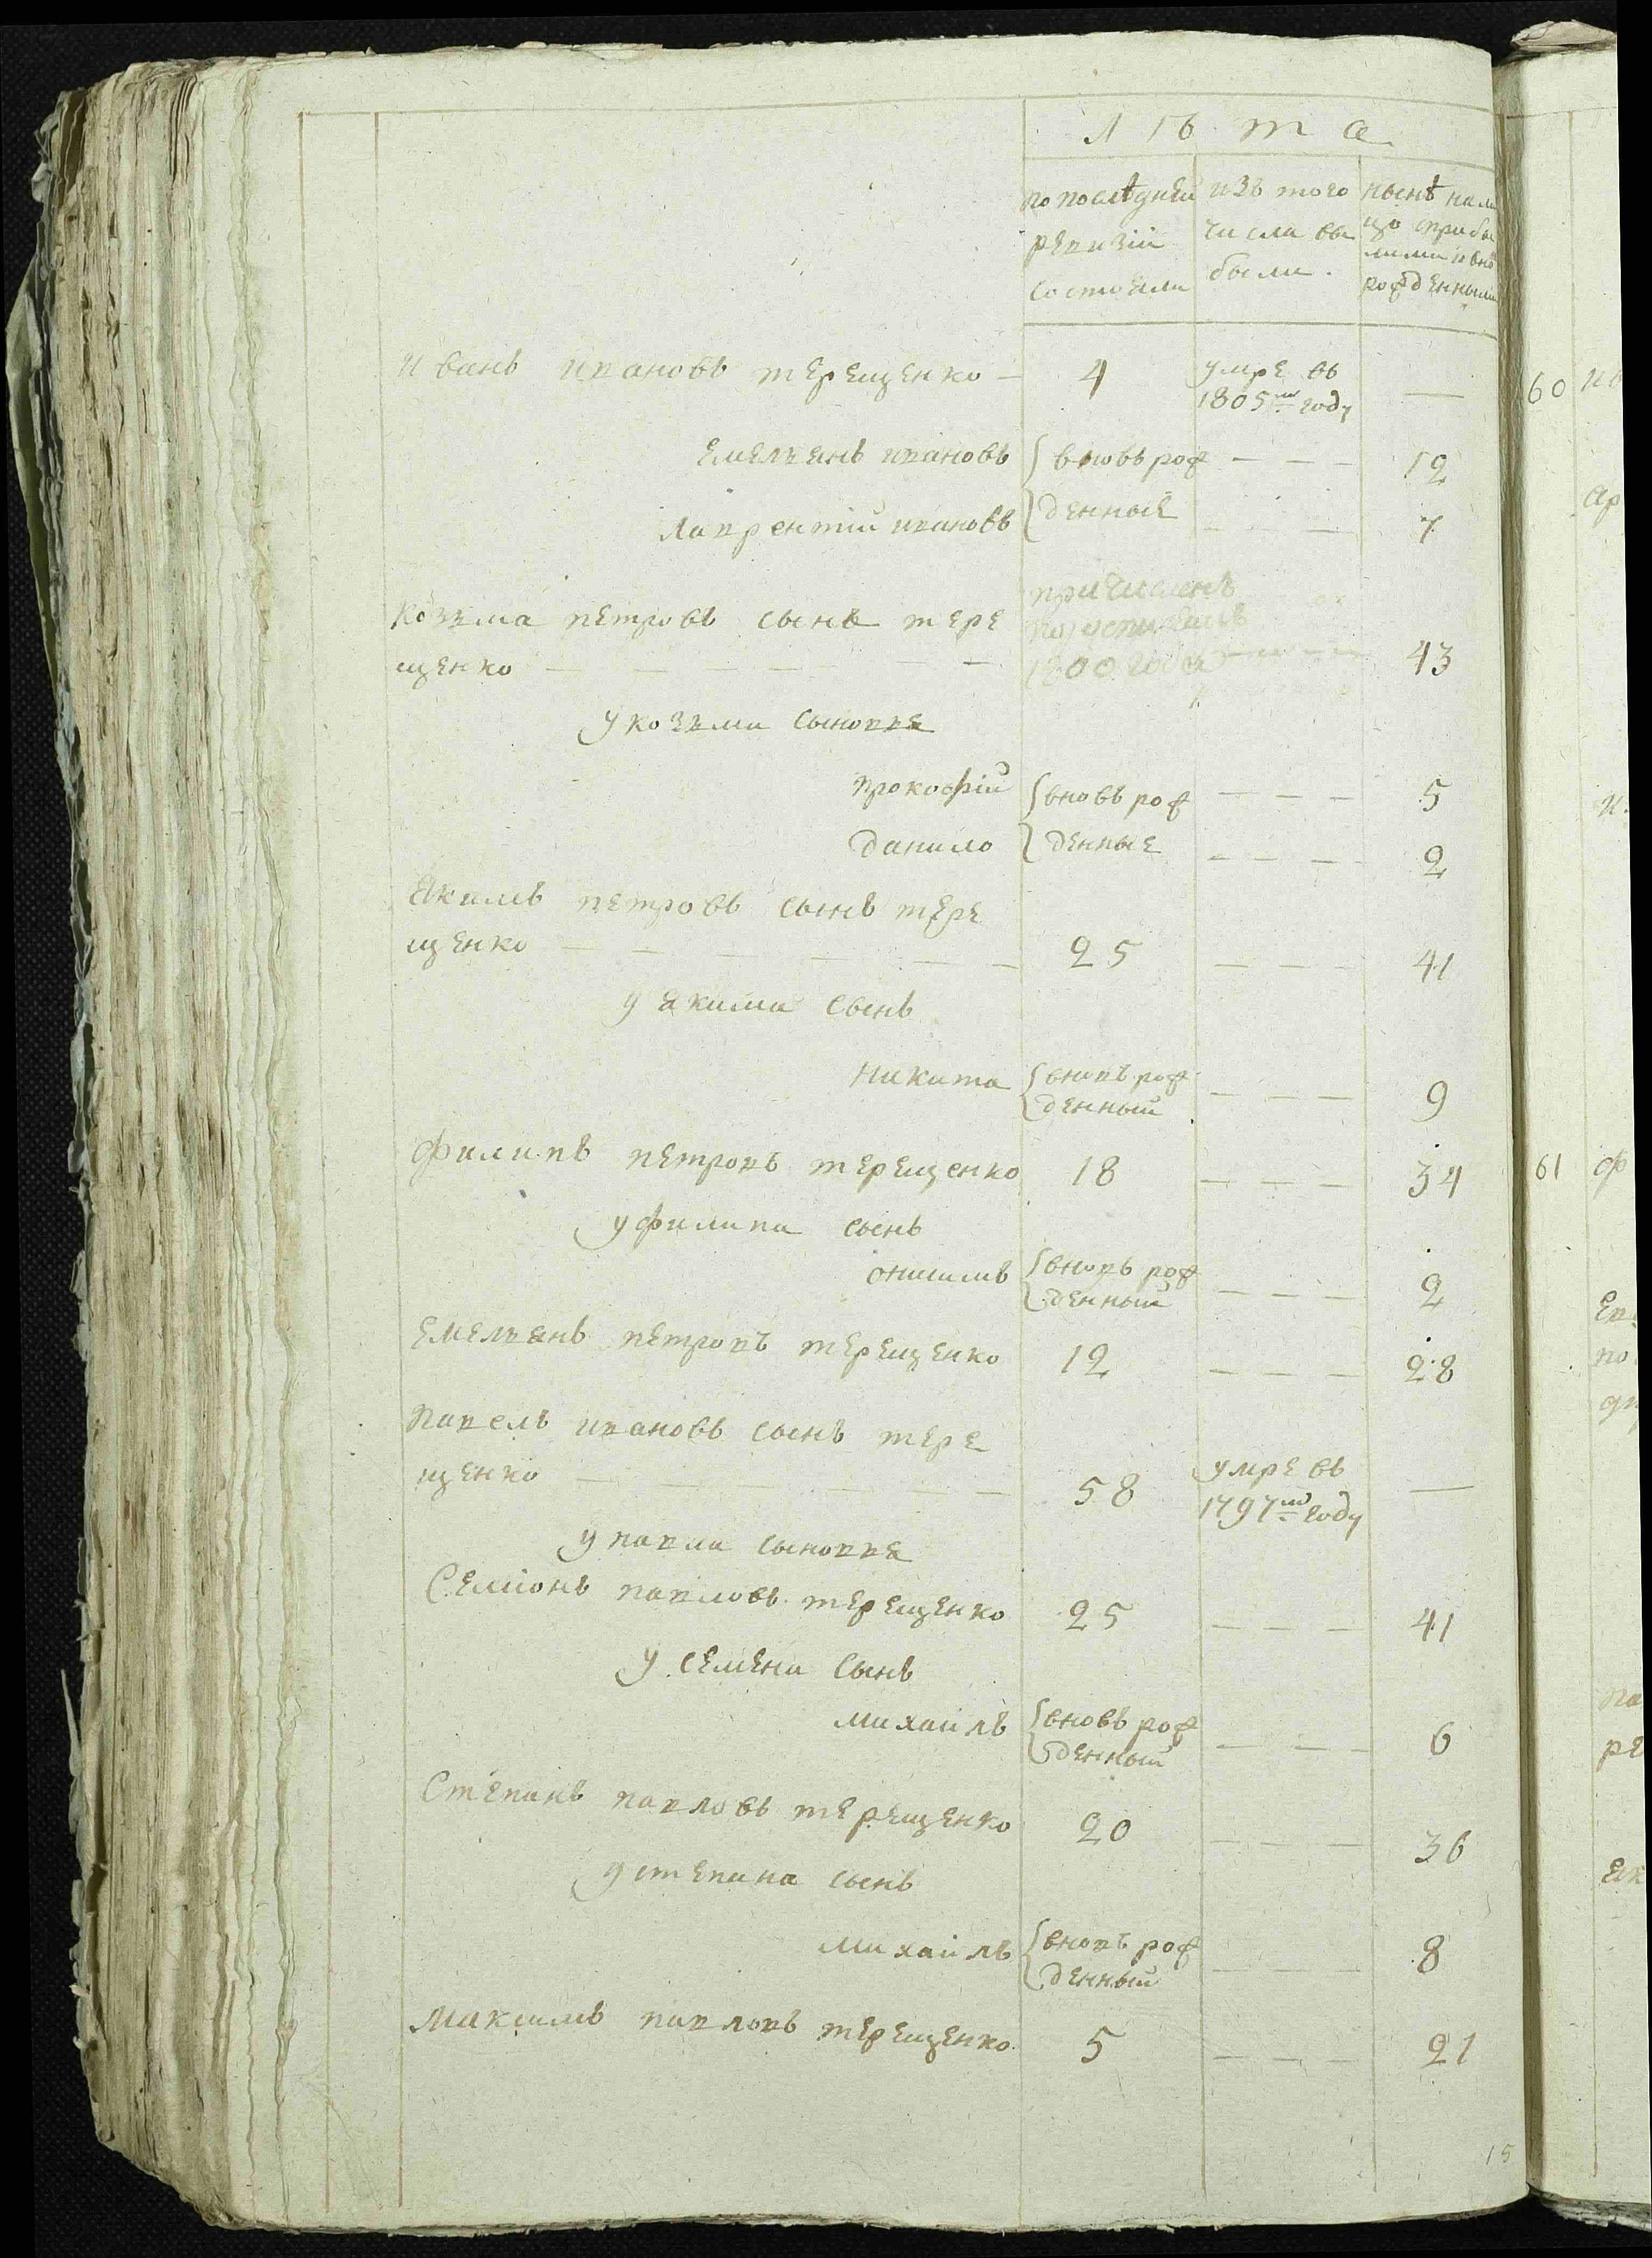 Лѣта
по послѣдней ревизіи состояли
изъ того числа выбыли.
нынѣ на лицо прибылими и вно рожденными
Иванъ Ивановъ Терещенко — 4 умре въ 1805м году —
Емельянъ Ивановъ вновь рож — — — 12
Лаврентій Ивановъ денные — — — 7
Козьма Петровъ сынъ Тере причисленъ
щенко — — — — — 1800 года — — — 43
у Козьми сыновья
Прокофій вновь рож — — — 5
Данило денные — — — 2
Якимъ Петровъ сынъ Тере
щенко — — — — — — 25 — — — 41
у Якима сынъ
Никита вновь рожденный — — — 9
Филипъ Петровъ Терещенко 18 — — — 34
у Филипа сынъ
Онисимъ вновь рожденный — — — 2
Емельянъ Петровъ Терещенко 12 — — — 28
Павелъ Ивановъ сынъ Тере
щенко — — — — — — 58 умре въ 1797м году —
у Павла сыновья
Семіонъ Павловъ Терещенко 25 — — — 41
у Семена сынъ
Михаилъ вновь рожденный — — — 6
Степанъ Павловъ Терещенко 20 — — — 36
у Степана сынъ
Михаилъ вновь рожденный — — — 8
Максимъ Павловъ Терещенко 5 — — — 21
15
60
61